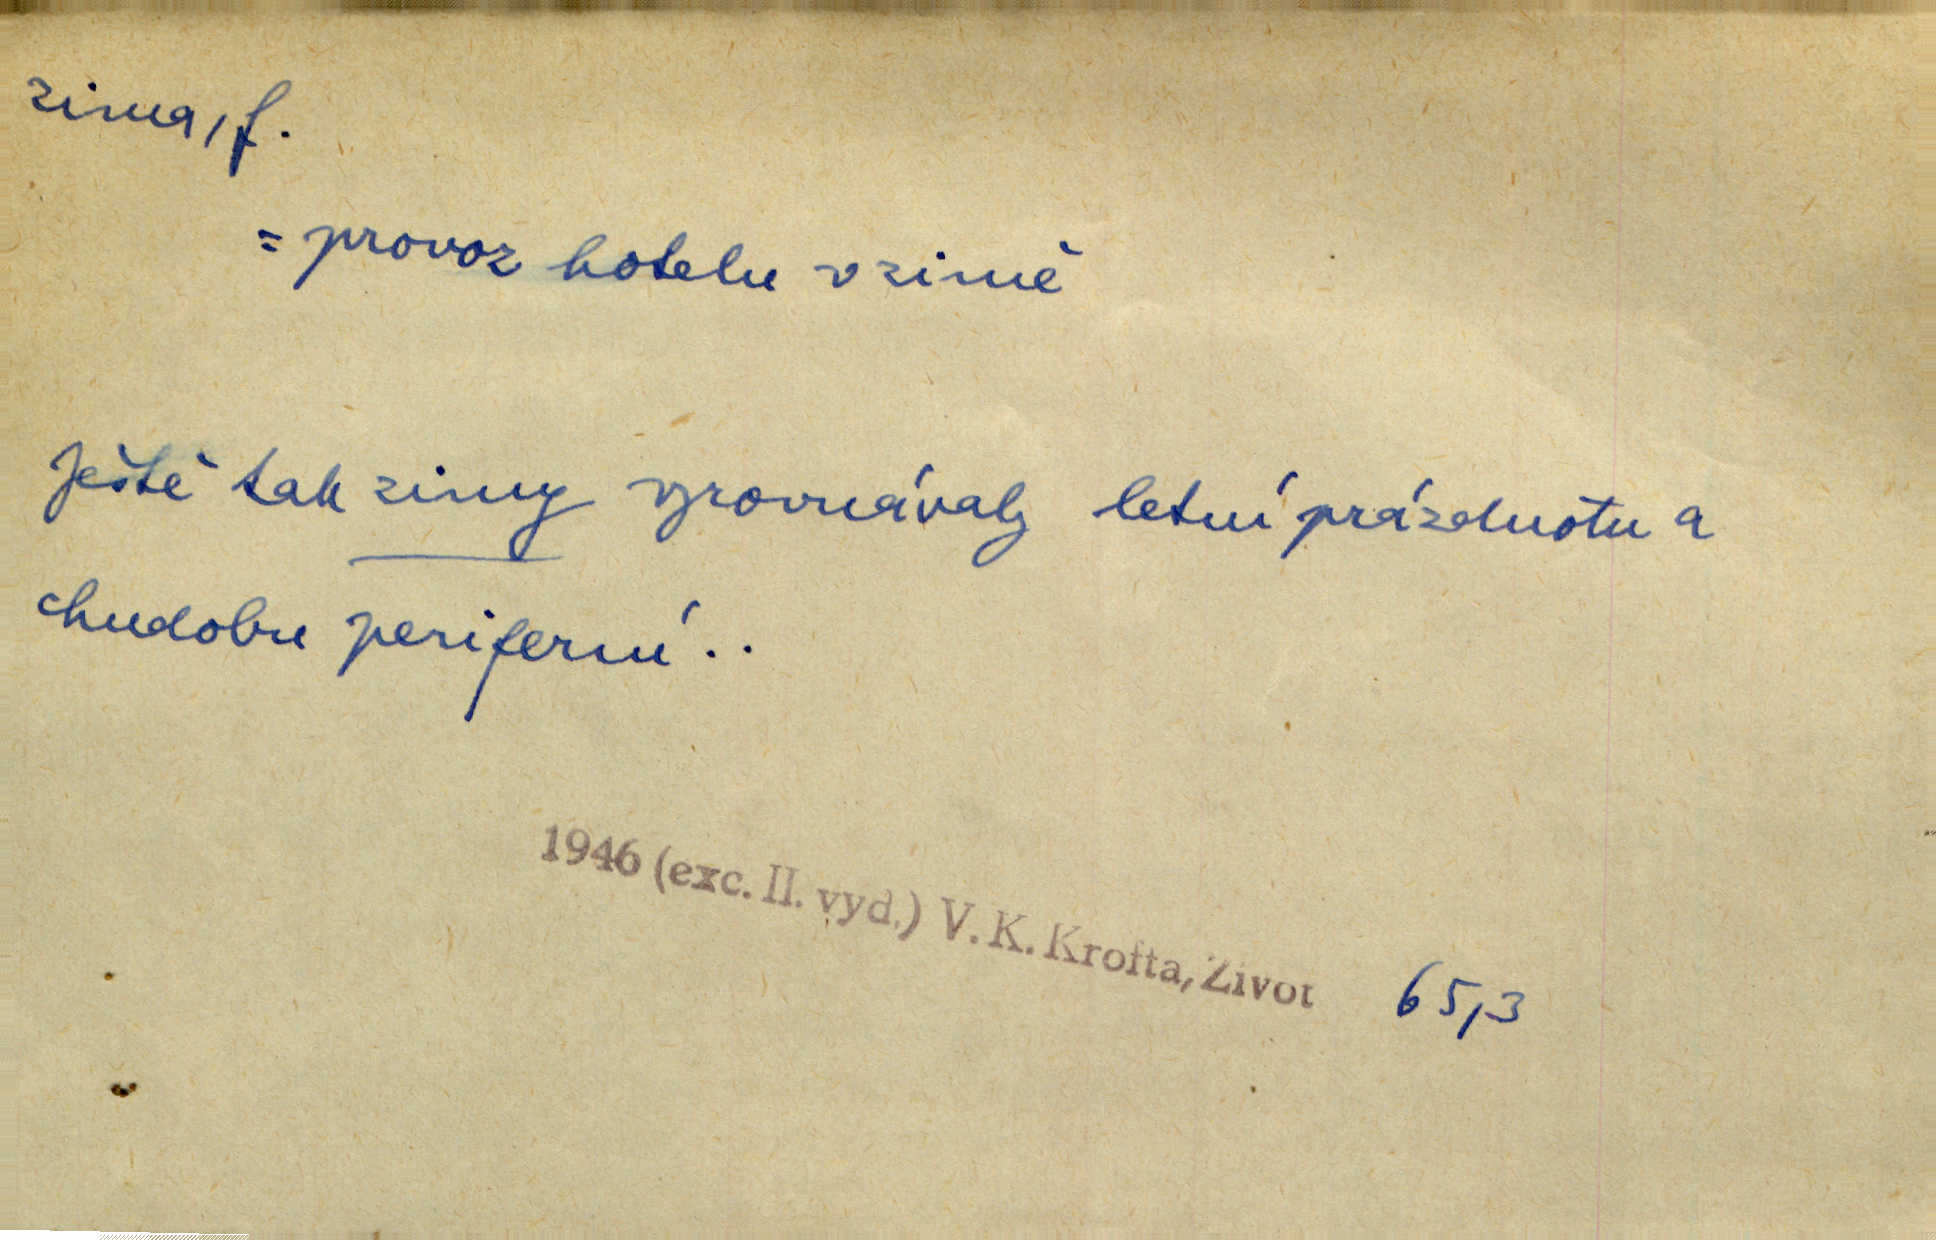 zima, f.
= provoz hotelu v zimě
Ještě tak zimy vyrovnávaly letní prázdnotu a
chudobu periferní ..
1946 (exc. II. vyd.) V. K. Krofta, Život 65,3